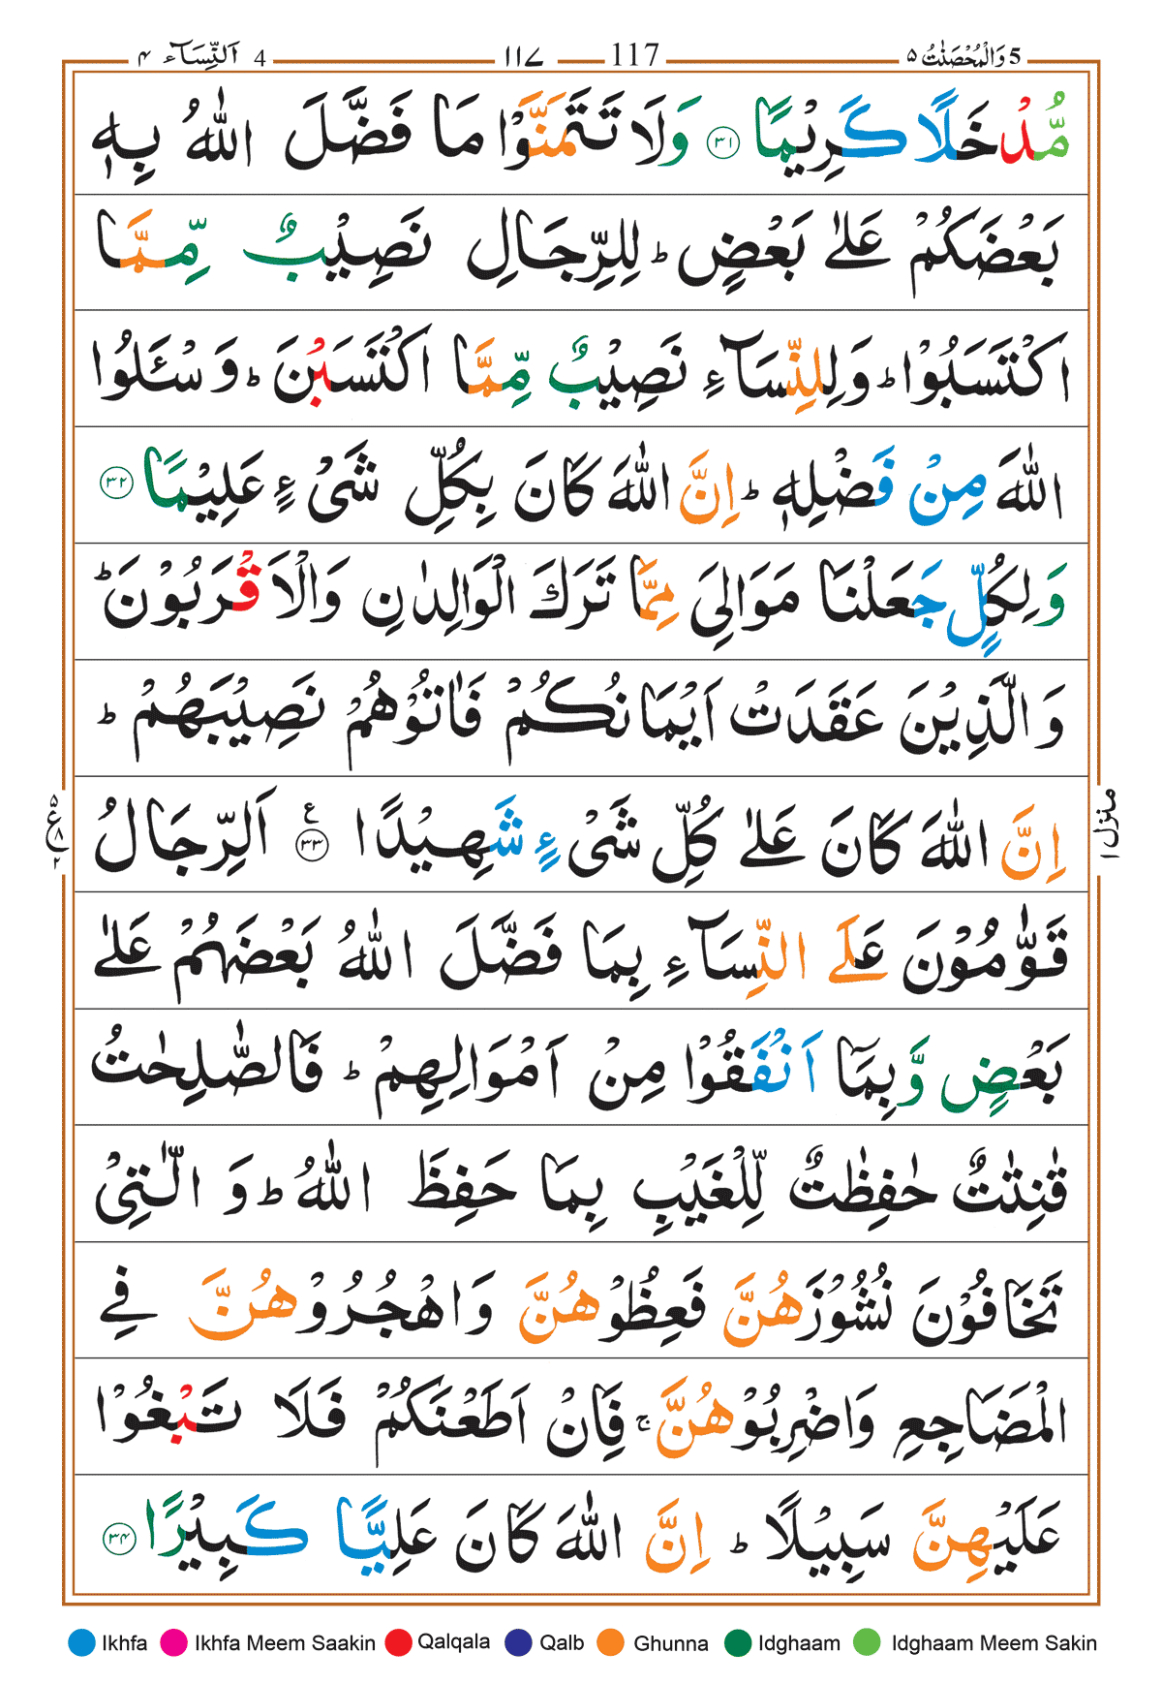 5 وَالْمُحْصَنٰتُ ۵ 117 ١١٧ 4 اَلنِّسَآء ۴
مُّدْخَلًا كَرِيْمًا ۳۱ وَلَا تَتَمَنَّوْا مَا فَضَّلَ اللّٰهُ بِهٖ
بَعْضَكُمْ عَلٰى بَعْضٍ ؕ لِلرِّجَالِ نَصِيْبٌ مِّمَّا
اكْتَسَبُوْا ؕ وَلِلنِّسَآءِ نَصِيْبٌ مِّمَّا اكْتَسَبْنَ ؕ وَسْـَٔلُوا
اللّٰهَ مِنْ فَضْلِهٖ ؕ اِنَّ اللّٰهَ كَانَ بِكُلِّ شَىْءٍ عَلِيْمًا ۳۲
وَلِكُلٍّ جَعَلْنَا مَوَالِىَ مِمَّا تَرَكَ الْوَالِدٰنِ وَالْاَقْرَبُوْنَ ؕ
وَالَّذِيْنَ عَقَدَتْ اَيْمَانُكُمْ فَاٰتُوْهُمْ نَصِيْبَهُمْ ؕ
اِنَّ اللّٰهَ كَانَ عَلٰى كُلِّ شَىْءٍ شَهِيْدًا ۳۳ ع اَلرِّجَالُ
قَوّٰمُوْنَ عَلَى النِّسَآءِ بِمَا فَضَّلَ اللّٰهُ بَعْضَهُمْ عَلٰى
بَعْضٍ وَّبِمَاۤ اَنْفَقُوْا مِنْ اَمْوَالِهِمْ ؕ فَالصّٰلِحٰتُ
قٰنِتٰتٌ حٰفِظٰتٌ لِّلْغَيْبِ بِمَا حَفِظَ اللّٰهُ ؕ وَالّٰتِىْ
تَخَافُوْنَ نُشُوْزَهُنَّ فَعِظُوْهُنَّ وَاهْجُرُوْهُنَّ فِى
الْمَضَاجِعِ وَاضْرِبُوْهُنَّ ۚ فَاِنْ اَطَعْنَكُمْ فَلَا تَبْغُوْا
عَلَيْهِنَّ سَبِيْلًا ؕ اِنَّ اللّٰهَ كَانَ عَلِيًّا كَبِيْرًا ۳۴
منزل ١
۵ ع ۸ ۲
Ikhfa Ikhfa Meem Saakin Qalqala Qalb Ghunna Idghaam Idghaam Meem Sakin